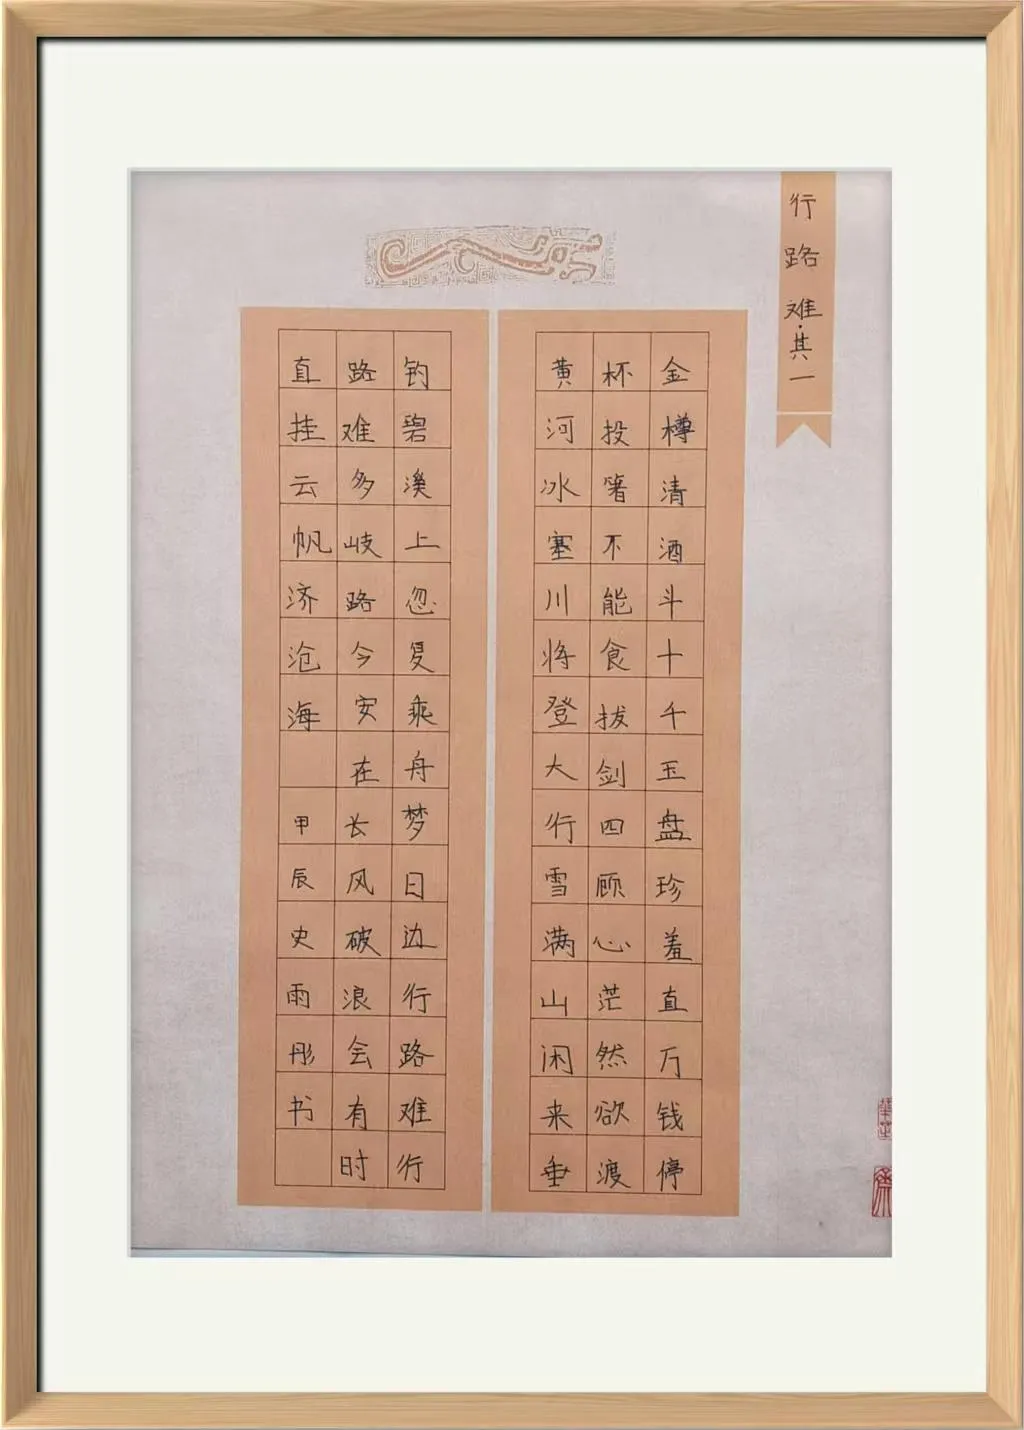 行路难·其一
金樽清酒斗十千玉盘珍羞直万钱停
杯投箸不能食拔剑四顾心茫然欲渡
黄河冰塞川将登大行雪满山闲来垂
钓碧溪上忽复乘舟梦日边行路难行
路难多岐路今安在长风破浪会有时
直挂云帆济沧海 甲辰史雨彤书